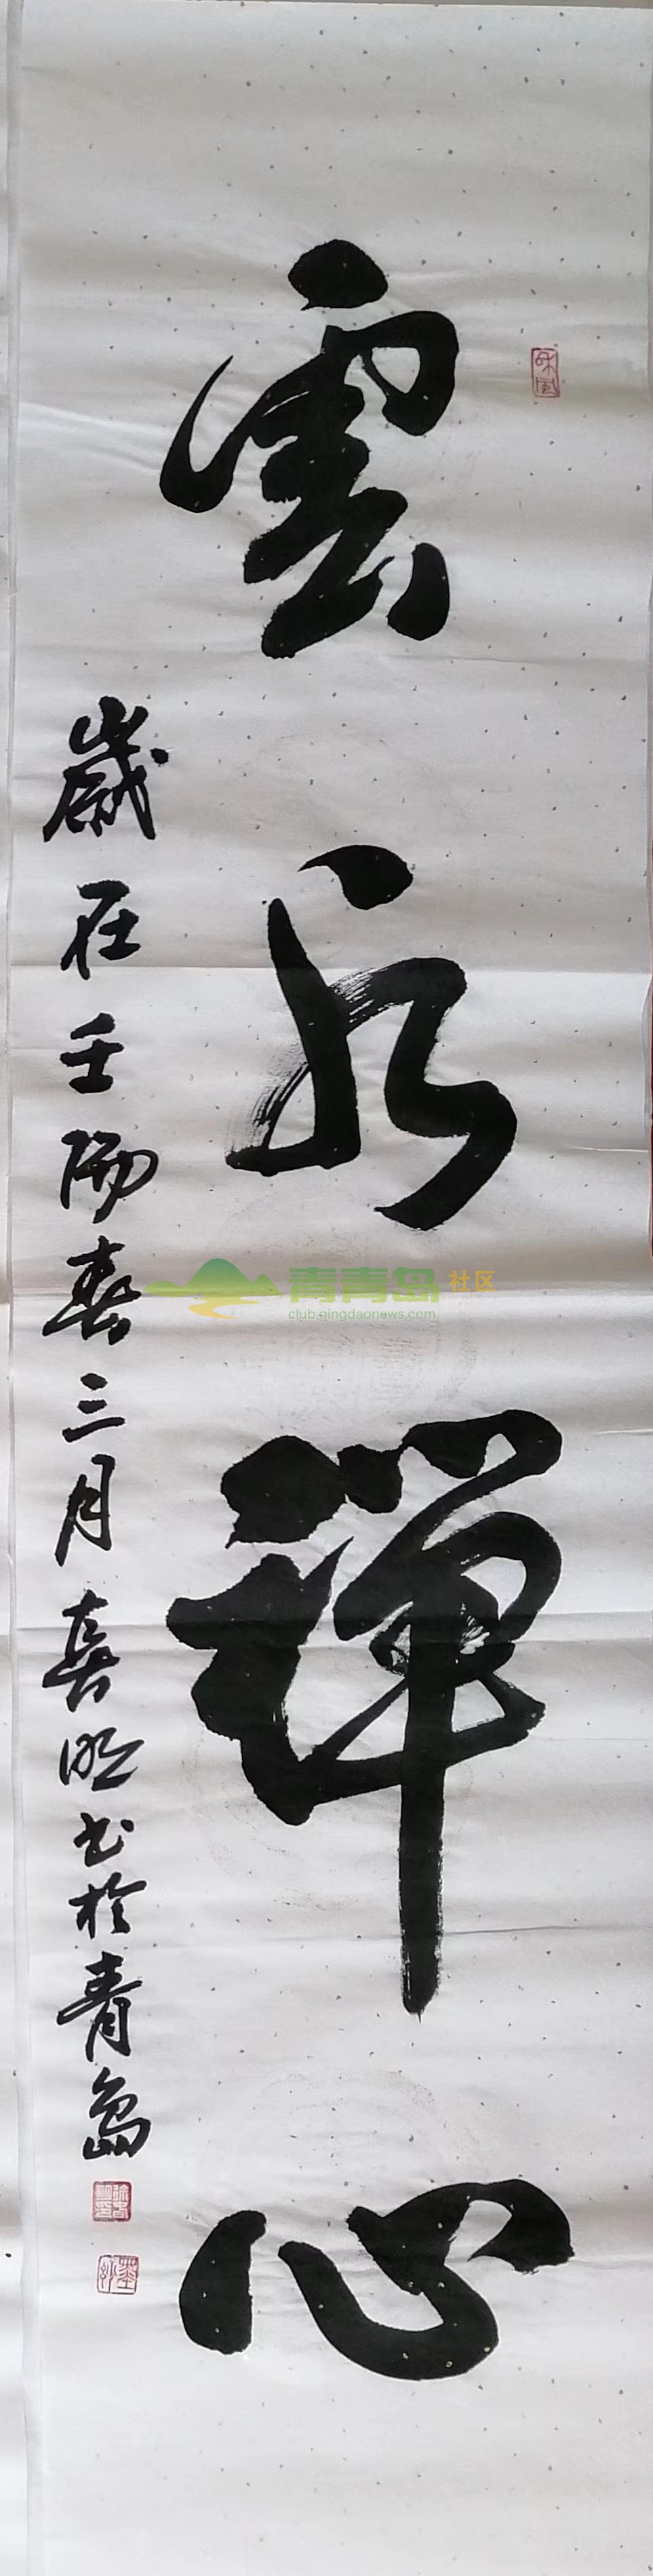 雲水禪心
歲在壬陽春三月喜明书於青島
青青岛社区
club.qingdaonews.com